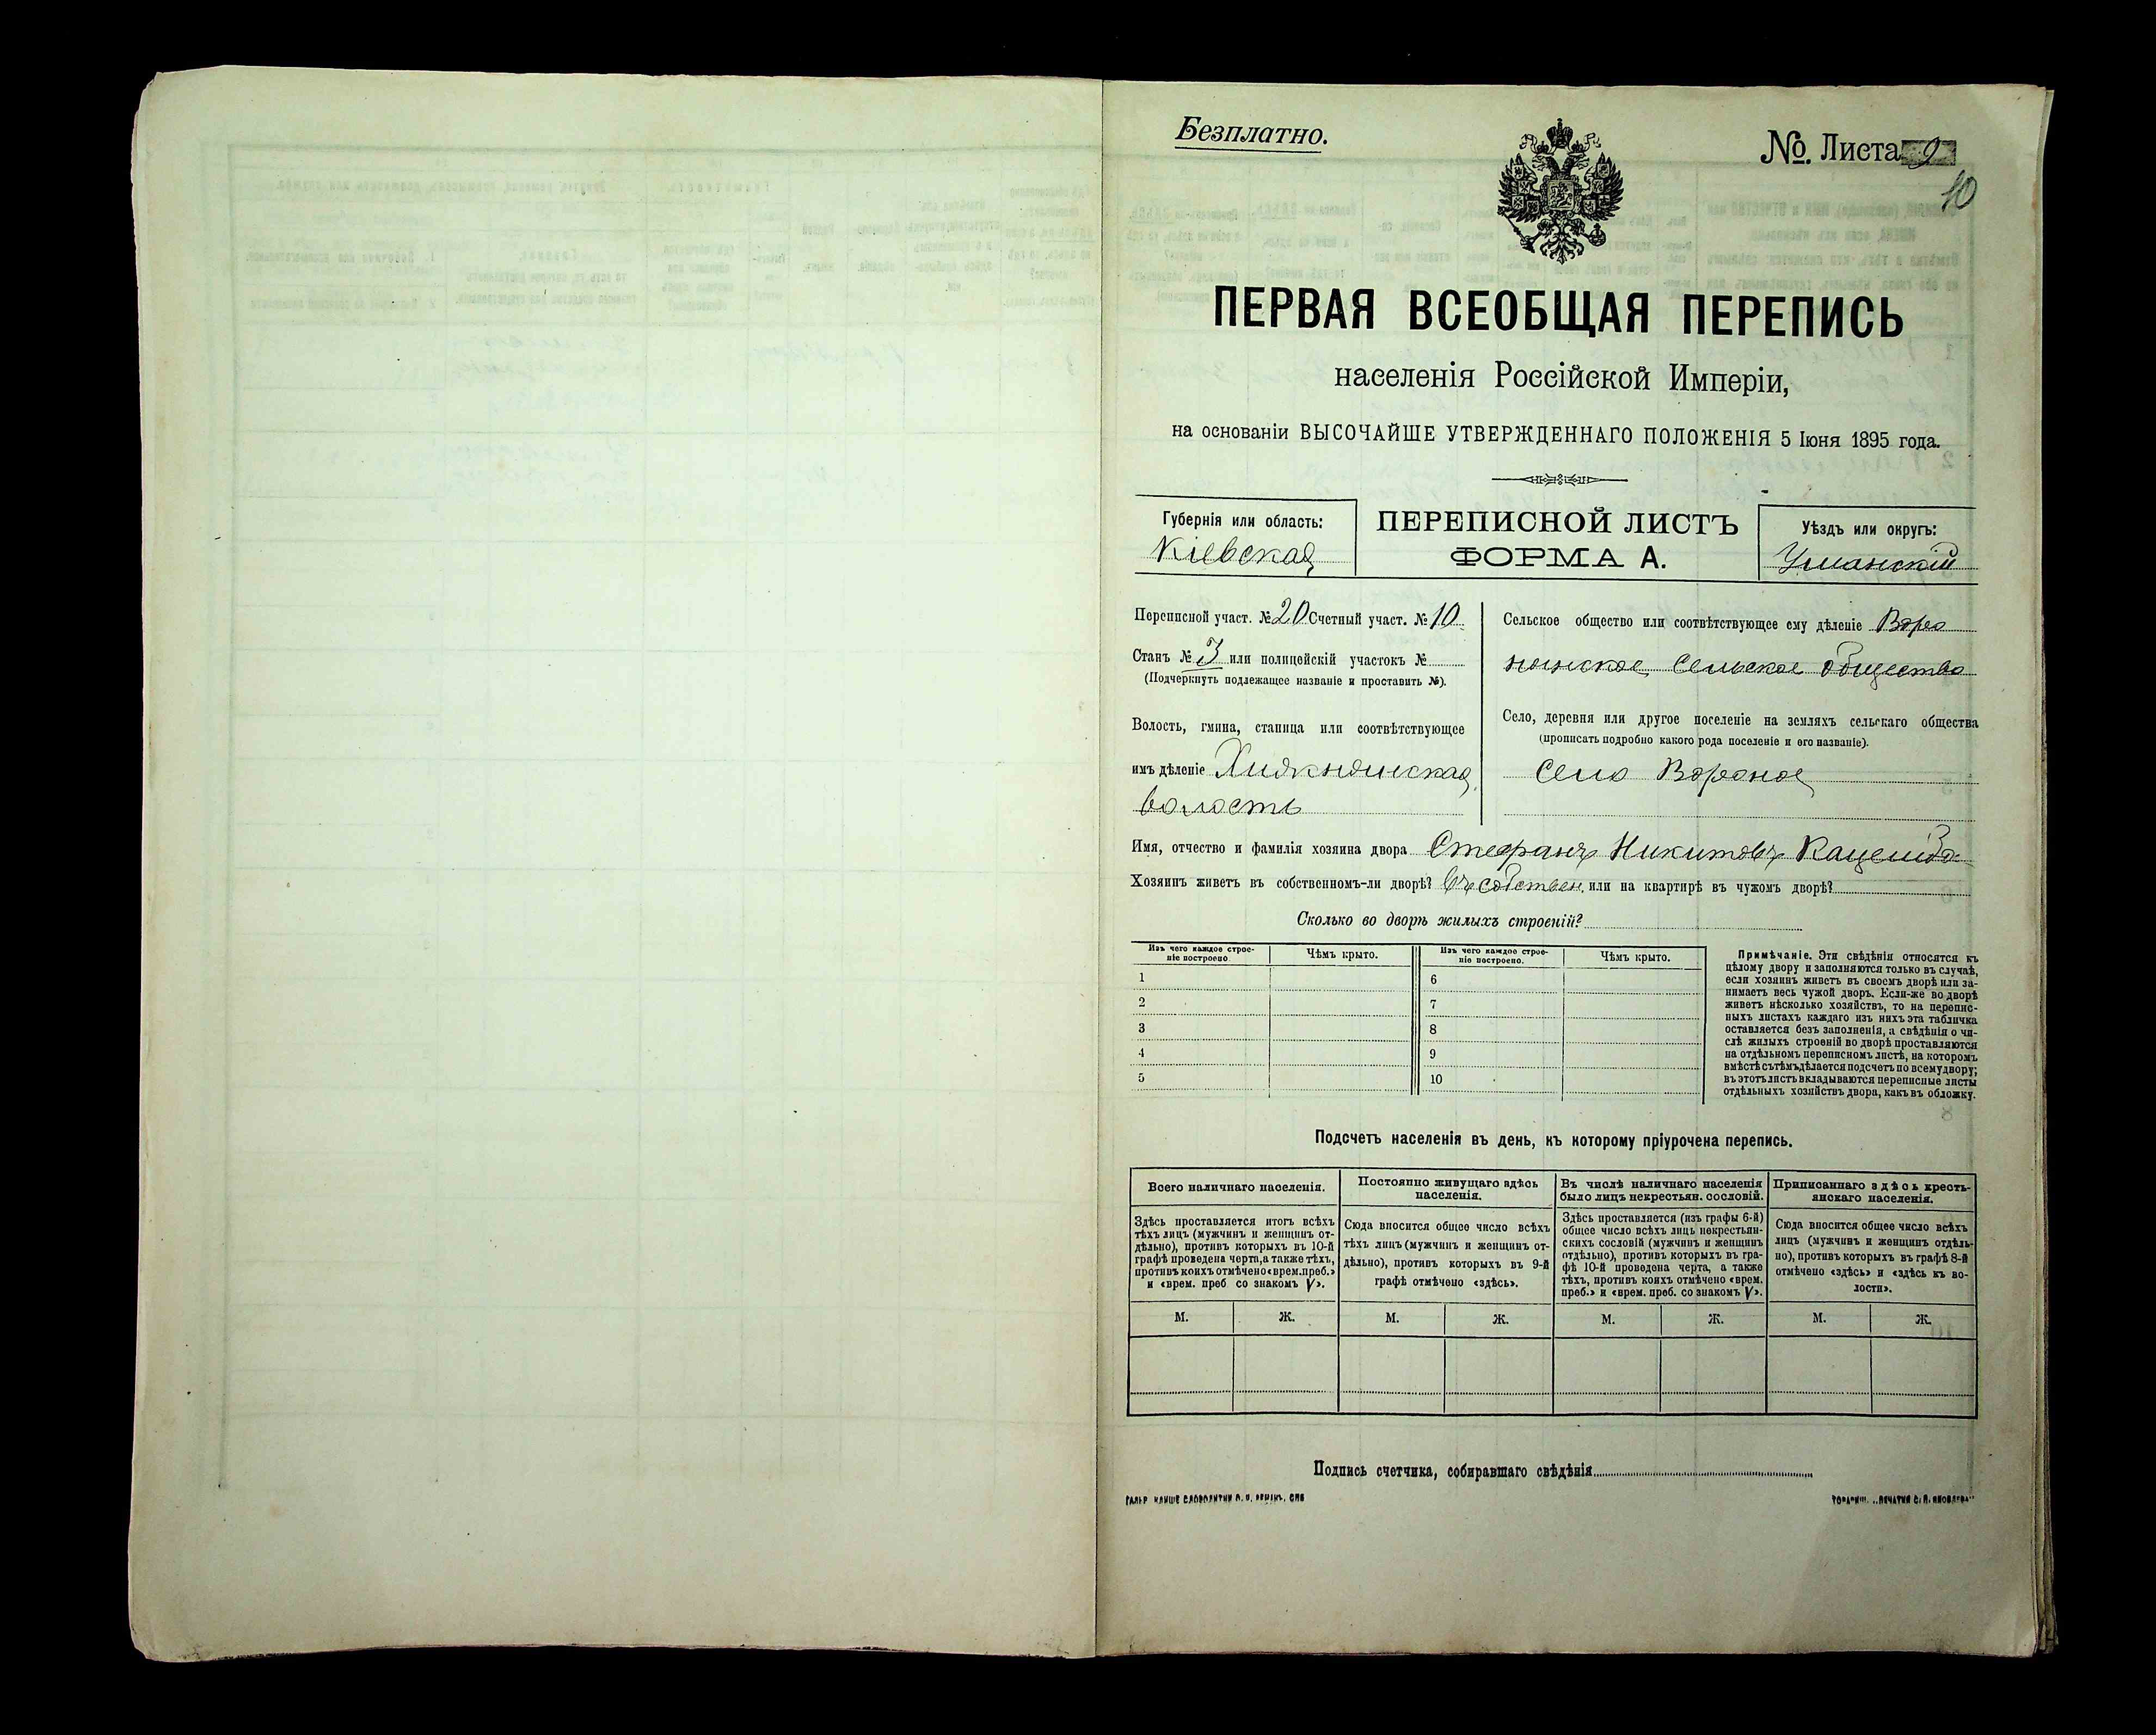 Безплатно.
№. Листа 9
10
ПЕРВАЯ ВСЕОБЩАЯ ПЕРЕПИСЬ
населенія Россійской Имперіи,
на основаніи ВЫСОЧАЙШЕ УТВЕРЖДЕННАГО ПОЛОЖЕНІЯ 5 Іюня 1895 года.
Губернія или область:
Кіевская
ПЕРЕПИСНОЙ ЛИСТЪ
ФОРМА А.
Уѣздъ или округъ:
Уманскій
Переписной участ. № 20 Счетный участ. № 10
Станъ № 3 или полицейскій участокъ №
(Подчеркнуть подлежащее названіе и проставить №).
Волость, гмина, станица или соотвѣтствующее
имъ дѣленіе
волость
Сельское общество или соотвѣтствующее ему дѣленіе Воро
нянское сельское общество
Село, деревня или другое поселеніе на земляхъ сельскаго общества
(прописать подробно какого рода поселеніе и его названіе).
Село Вороное
Имя, отчество и фамилія хозяина двора Стефанъ Никитовъ
Хозяинъ живетъ въ собственномъ-ли дворѣ? въ собствен. или на квартирѣ въ чужомъ дворѣ?
Сколько во дворѣ жилыхъ строеній?
Изъ чего каждое строе-
ніе построено
Чѣмъ крыто.
Изъ чего каждое строе-
ніе построено.
Чѣмъ крыто.
1
6
2
7
3
8
4
9
5
10
Примѣчаніе. Эти свѣдѣнія относятся къ
цѣлому двору и заполняются только въ случаѣ,
если хозяинъ живетъ въ своемъ дворѣ или за-
нимаетъ весь чужой дворъ. Если-же во дворѣ
живетъ нѣсколько хозяйствъ, то на перепис-
ныхъ листахъ каждаго изъ нихъ эта табличка
оставляется безъ заполненія, а свѣдѣнія о чи-
слѣ жилыхъ строеній во дворѣ проставляются
на отдѣльномъ переписномъ листѣ, на которомъ
вмѣстѣ съ тѣмъ дѣлается подсчетъ по всему двору;
въ этотъ листъ вкладываются переписные листы
отдѣльныхъ хозяйствъ двора, какъ въ обложку.
Подсчетъ населенія въ день, къ которому пріурочена перепись.
Всего наличнаго населенія.
Постоянно живущаго здѣсь
населенія.
Въ числѣ наличнаго населенія
было лицъ некрестьян. сословій.
Приписаннаго здѣсь кресть-
янскаго населенія.
Здѣсь проставляется итогъ всѣхъ
тѣхъ лицъ (мужчинъ и женщинъ от-
дѣльно), противъ которыхъ въ 10-й
графѣ проведена черта, а также тѣхъ,
противъ коихъ отмѣчено «врем. преб.»
и «врем. преб. со знакомъ V».
Сюда вносится общее число всѣхъ
тѣхъ лицъ (мужчинъ и женщинъ от-
дѣльно), противъ которыхъ въ 9-й
графѣ отмѣчено «здѣсь».
Здѣсь проставляется (изъ графы 6-й)
общее число всѣхъ лицъ некрестьян-
скихъ сословій (мужчинъ и женщинъ
отдѣльно), противъ которыхъ въ гра-
фѣ 10-й проведена черта, а также
тѣхъ, противъ коихъ отмѣчено «врем.
преб.» и «врем. преб. со знакомъ V».
Сюда вносится общее число всѣхъ
лицъ (мужчинъ и женщинъ отдѣль-
но), противъ которыхъ въ графѣ 8-й
отмѣчено «здѣсь» и «здѣсь къ во-
лости».
М. Ж. М. Ж. М. Ж. М. Ж.
Подпись счетчика, собиравшаго свѣдѣнія